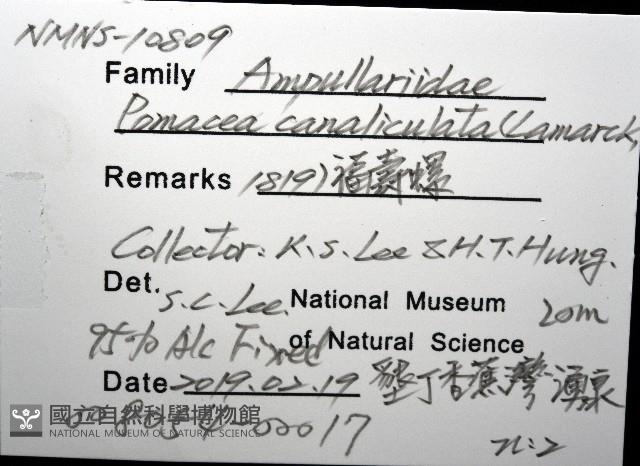 NMNS-10809
Family Ampullariidae
Pomacea canaliculata (Lamarck,
Remarks 1819) 福壽螺
Collector: K.S. Lee & H.T. Hung.
Det. S.C. Lee. National Museum 20m
95% Alc Fixed of Natural Science
Date 2019.02.19 墾丁香蕉灣湧泉
國立自然科學博物館
NATIONAL MUSEUM OF NATURAL SCIENCE
00017
n:2